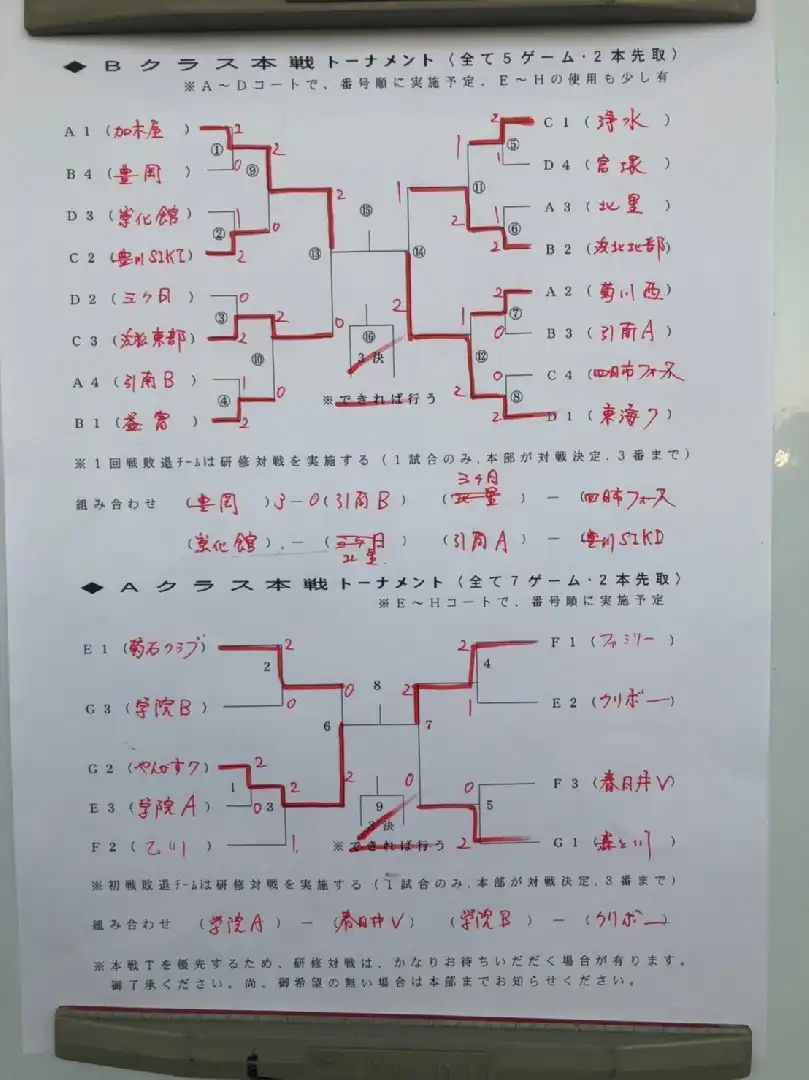 ◆Bクラス本戦トーナメント(全て5ゲーム・2本先取)
※A～Dコートで、番号順に実施予定、E～Hの使用も少し有
A1(加木屋) 2 2 C1(浄水)
① ⑨ 2 1 ⑤
B4(豊岡) 0 1 D4(富塚)
2 ⑮ 1 ⑪
D3(崇化館) 1 1 A3(北星)
② 0 2 ⑥
C2(豊川SIKI) 2 2 B2(浜北北部)
⑬ ⑭
D2(三ヶ日) 0 2 A2(菊川西)
③ 2 2 1 ⑦
C3(東部) 2 0 ⑯ 0 B3(引南A)
⑩ 3決 ⑫
A4(引南B) 1 1 0 C4(四日市フォース)
④ 0 ※できれば行う 2 ⑧
B1(益富) 2 2 D1(東海ク)
※1回戦敗退チームは研修対戦を実施する(1試合のみ、本部が対戦決定、3番まで)
三ヶ日
組み合わせ (豊岡)3-0(引南B) (北星) - (四日市フォース
(崇化館) - (三ヶ日) (引南A) - 豊川SIKI
北星
◆Aクラス本戦トーナメント(全て7ゲーム・2本先取)
※E～Hコートで、番号順に実施予定
E1(菊石クラブ) 2 2 F1(ファミリー)
2 0 8 2 4
G3(学院B) 0 1 E2(クリボー)
6 7
G2(やんかすク) 2
1 2 2 9 0 0 F3(春日井V)
E3(学院A) 0 3 3決 5
F2(乙川) 1 ※できれば行う 2 G1()
※初戦敗退チームは研修対戦を実施する(1試合のみ、本部が対戦決定、3番まで)
組み合わせ (学院A) - (春日井V) (学院B) - (クリボー
※本戦Tを優先するため、研修対戦は、かなりお待ちいだだく場合が有ります。
御了承ください。尚、御希望の無い場合は本部までお知らせください。